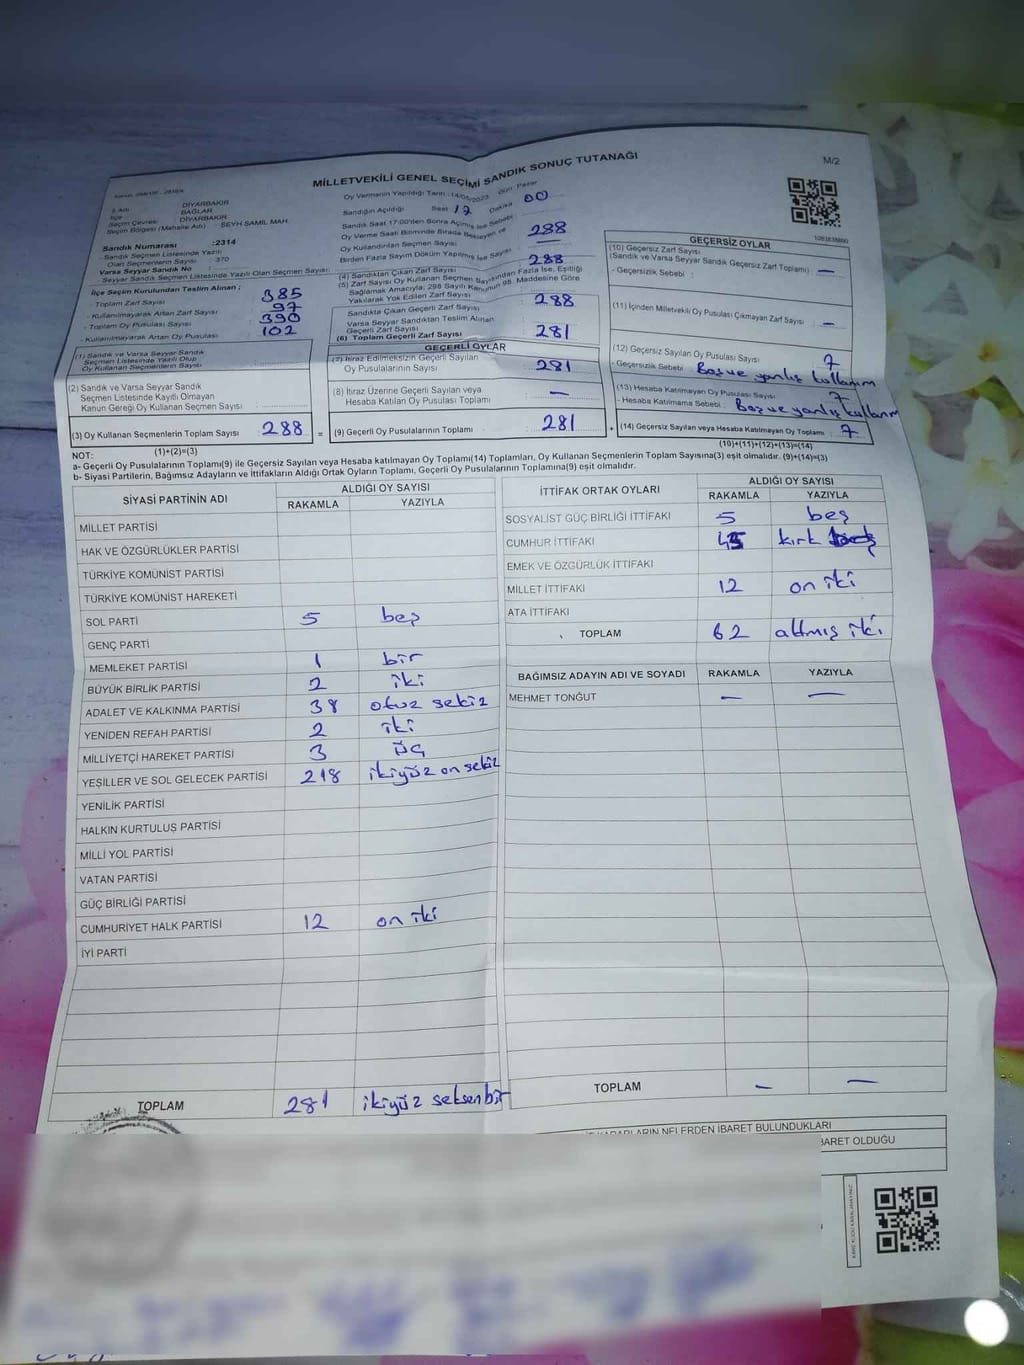 MİLLETVEKİLİ GENEL SEÇİMİ SANDIK SONUÇ TUTANAĞI
M/2
İl Adı : DİYARBAKIR
İlçe : BAĞLAR
Seçim Çevresi : DİYARBAKIR
Seçim Bölgesi (Mahalle Adı) : ŞEYH ŞAMİL MAH.
Sandık Numarası :2314
- Sandık Seçmen Listesinde Yazılı
Olan Seçmenlerin Sayısı : 370
Varsa Seyyar Sandık No :
- Seyyar Sandık Seçmen Listesinde Yazılı Olan Seçmen Sayısı:
İlçe Seçim Kurulundan Teslim Alınan ;
- Toplam Zarf Sayısı : 385
- Kullanılmayarak Artan Zarf Sayısı : 97
- Toplam Oy Pusulası Sayısı : 390
- Kullanılmayarak Artan Oy Pusulası : 102
(1) Sandık ve Varsa Seyyar Sandık
Seçmen Listesinde Yazılı Olup
Oy Kullanan Seçmenlerin Sayısı :
(2) Sandık ve Varsa Seyyar Sandık
Seçmen Listesinde Kayıtlı Olmayan
Kanun Gereği Oy Kullanan Seçmen Sayısı :
(3) Oy Kullanan Seçmenlerin Toplam Sayısı : 288
(1)+(2)=(3)
Oy Vermenin Yapıldığı Tarih : 14/05/2023 Gün: Pazar
Sandığın Açıldığı Saat 17 Dakika 00
Sandık Saat 17:00'den Sonra Açılmış İse Sebebi :
Oy Verme Saati Bitiminde Sırada Bekleyen ve
Oy Kullandırılan Seçmen Sayısı : 288
Birden Fazla Sayım Döküm Yapılmış İse Sayısı : —
(4) Sandıktan Çıkan Zarf Sayısı : 288
(5) Zarf Sayısı Oy Kullanan Seçmen Sayısından Fazla İse, Eşitliği
Sağlamak Amacıyla; 298 Sayılı Kanunun 98. Maddesine Göre
Yakılarak Yok Edilen Zarf Sayısı :
Sandıkta Çıkan Geçerli Zarf Sayısı : 288
Varsa Seyyar Sandıktan Teslim Alınan
Geçerli Zarf Sayısı :
(6) Toplam Geçerli Zarf Sayısı : 281
GEÇERLİ OYLAR
(7) İtiraz Edilmeksizin Geçerli Sayılan
Oy Pusulalarının Sayısı : 281
(8) İtiraz Üzerine Geçerli Sayılan veya
Hesaba Katılan Oy Pusulası Toplamı : —
= (9) Geçerli Oy Pusulalarının Toplamı : 281
GEÇERSİZ OYLAR
(10) Geçersiz Zarf Sayısı
(Sandık ve Varsa Seyyar Sandık Geçersiz Zarf Toplamı) : —
- Geçersizlik Sebebi :
(11) İçinden Milletvekili Oy Pusulası Çıkmayan Zarf Sayısı : —
(12) Geçersiz Sayılan Oy Pusulası Sayısı : 7
- Geçersizlik Sebebi : Boş ve yanlış kullanım
(13) Hesaba Katılmayan Oy Pusulası Sayısı : 7
- Hesaba Katılmama Sebebi : Boş ve yanlış kullanım
+ (14) Geçersiz Sayılan veya Hesaba Katılmayan Oy Toplamı : 7
(10)+(11)+(12)+(13)=(14)
NOT:
a- Geçerli Oy Pusulalarının Toplamı(9) ile Geçersiz Sayılan veya Hesaba katılmayan Oy Toplamı(14) Toplamları, Oy Kullanan Seçmenlerin Toplam Sayısına(3) eşit olmalıdır. (9)+(14)=(3)
b- Siyasi Partilerin, Bağımsız Adayların ve İttifakların Aldığı Ortak Oyların Toplamı, Geçerli Oy Pusulalarının Toplamına(9) eşit olmalıdır.
SİYASİ PARTİNİN ADI ALDIĞI OY SAYISI
RAKAMLA YAZIYLA
MİLLET PARTİSİ
HAK VE ÖZGÜRLÜKLER PARTİSİ
TÜRKİYE KOMÜNİST PARTİSİ
TÜRKİYE KOMÜNİST HAREKETİ
SOL PARTİ 5 beş
GENÇ PARTİ
MEMLEKET PARTİSİ 1 bir
BÜYÜK BİRLİK PARTİSİ 2 iki
ADALET VE KALKINMA PARTİSİ 38 otuz sekiz
YENİDEN REFAH PARTİSİ 2 iki
MİLLİYETÇİ HAREKET PARTİSİ 3 üç
YEŞİLLER VE SOL GELECEK PARTİSİ 218 ikiyüz on sekiz
YENİLİK PARTİSİ
HALKIN KURTULUŞ PARTİSİ
MİLLİ YOL PARTİSİ
VATAN PARTİSİ
GÜÇ BİRLİĞİ PARTİSİ
CUMHURİYET HALK PARTİSİ 12 on iki
İYİ PARTİ
TOPLAM 281 ikiyüz seksen bir
İTTİFAK ORTAK OYLARI ALDIĞI OY SAYISI
RAKAMLA YAZIYLA
SOSYALİST GÜÇ BİRLİĞİ İTTİFAKI 5 beş
CUMHUR İTTİFAKI 45 kırk beş
EMEK VE ÖZGÜRLÜK İTTİFAKI
MİLLET İTTİFAKI 12 on iki
ATA İTTİFAKI
TOPLAM 62 altmış iki
BAĞIMSIZ ADAYIN ADI VE SOYADI RAKAMLA YAZIYLA
MEHMET TONĞUT — —
TOPLAM — —
NELERDEN İBARET BULUNDUKLARI
İBARET OLDUĞU